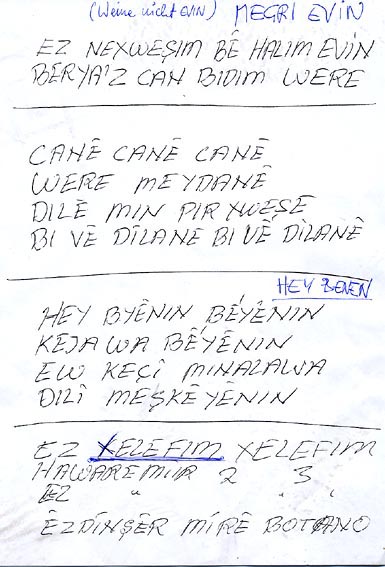 (Weine nicht EVIN) MEGRI EVIN
EZ NEXWEŞIM BÊ HALIM EVIN
BERYA'Z CAN BIDIM WERE
CANÊ CANÊ CANÊ
WERE MEYDANÊ
DILÊ MIN PIR XWEŞE
BI VÊ DÎLANÊ BI VÊ DÎLANÊ
HEY
HEY BYÊNIN BÊYÊNIN
KEJA WA BÊYÊNIN
EW KEÇÎ MINALAWA
DILÎ MEŞKÊYÊNIN
EZ XELEFIM XELEFIM
HAWAREMIR 2 3
EZ " " "
ÊZDÎNŞÊR MÎRÊ BOTANO